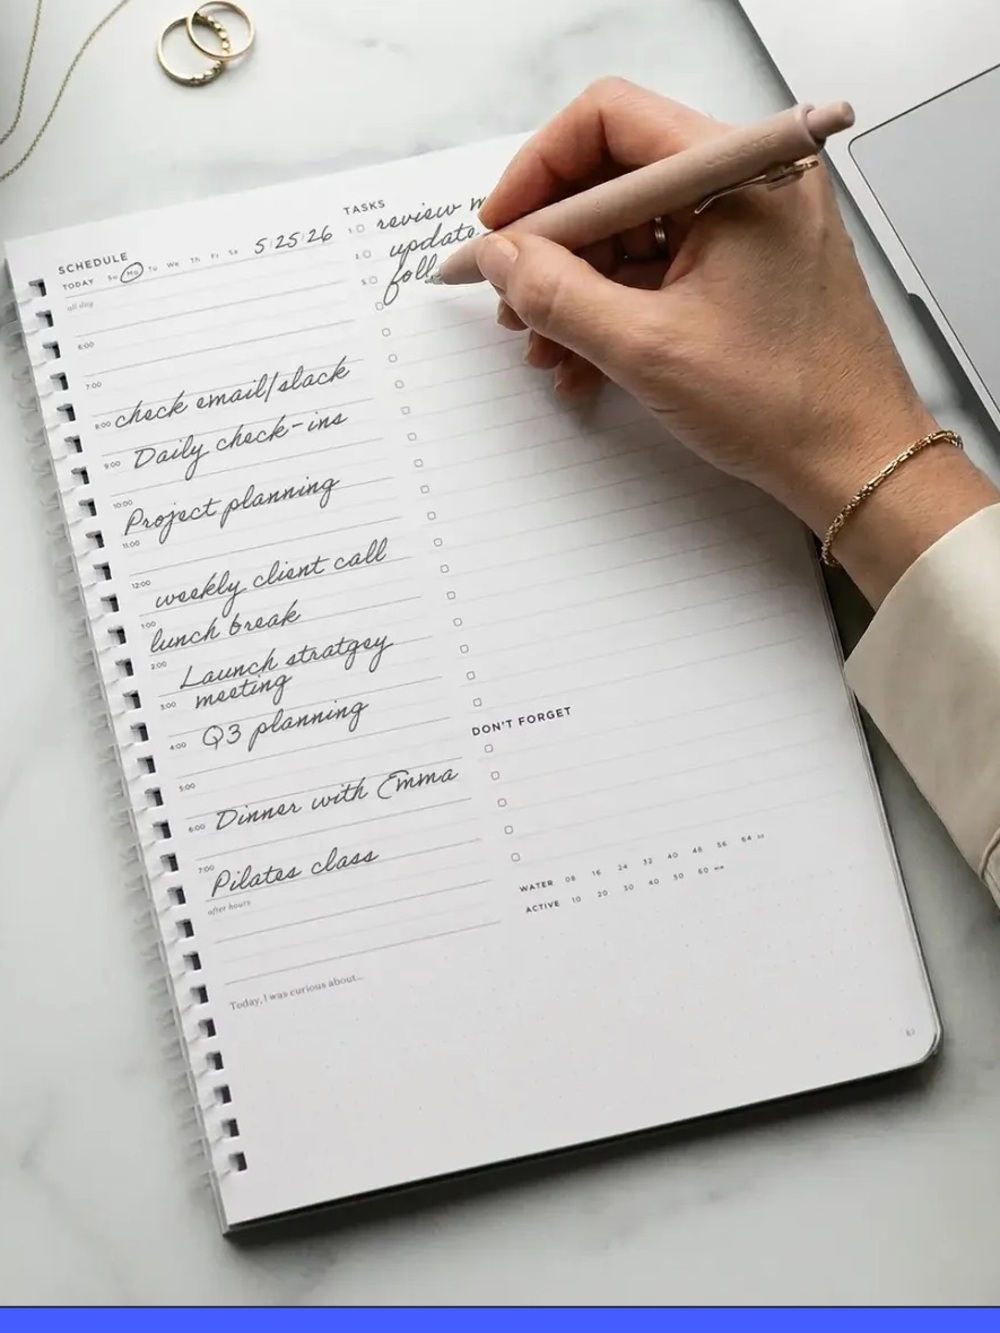 SCHEDULE
TODAY Su Mo Tu We Th Fr Sa 5/25/26
all day
6:00
7:00
8:00 check email/slack
9:00 Daily check-ins
10:00
Project planning
11:00
12:00
weekly client call
1:00
lunch break
2:00
Launch stratgey
3:00 meeting
4:00 Q3 planning
5:00
6:00 Dinner with Emma
7:00
Pilates class
after hours
Today, I was curious about...
TASKS
1. review
2. update
3.
DON'T FORGET
WATER 08 16 24 32 40 48 56 64 oz
ACTIVE 10 20 30 40 50 60 min